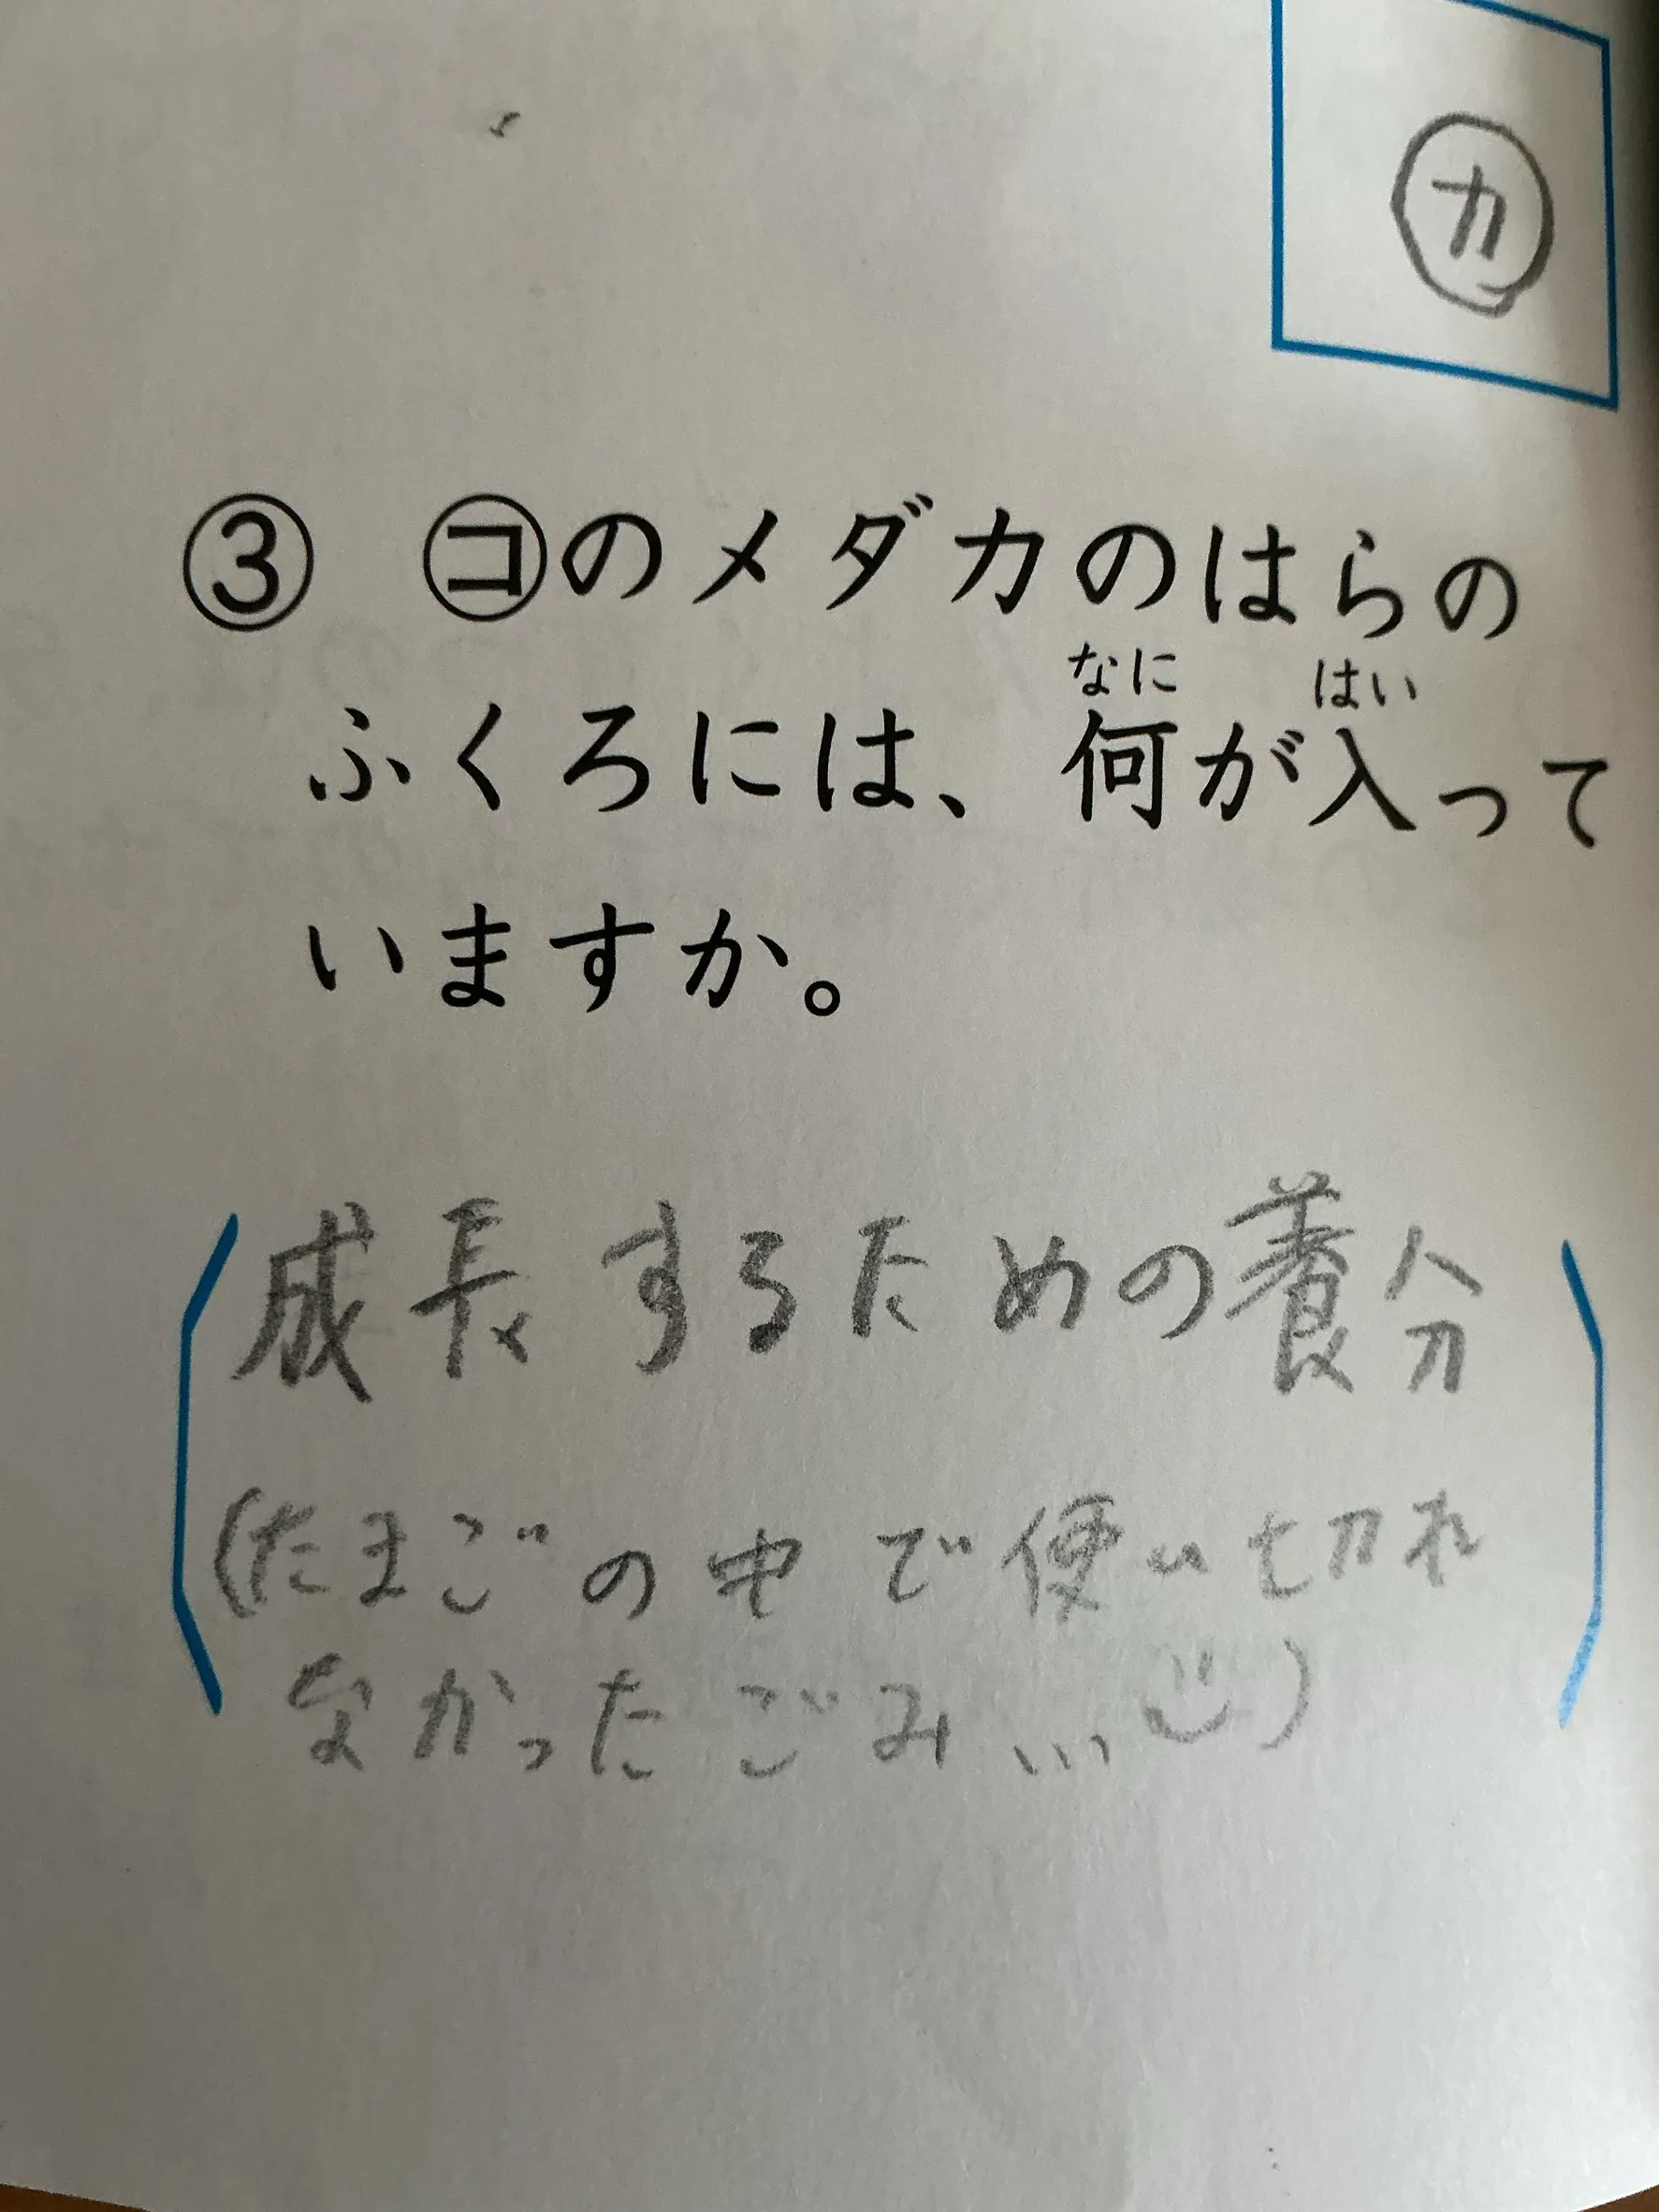 ㋕
③ ㋙のメダカのはらの
ふくろには、何が入って
なに はい
いますか。
成長するための養分
(たまごの中で使い切れ
なかったごみ...)